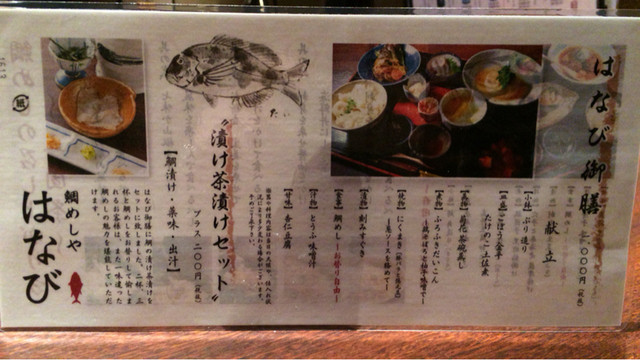 はなび御膳
二、〇〇〇円(税抜)
献立
【小鉢】ぶり造り
【三皿】ごぼう金平
たけのこ土佐煮
【蒸物】菊花茶碗蒸し
【煮物】ふろふきだいこん
【焼物】にくまき
【漬物】刻みすぐき
【食事】鯛めし ―お替り自由―
【汁物】とうふ味噌汁
【甘味】杏仁豆腐
たい
“漬け茶漬けセット”
プラス二〇〇円(税抜)
【鯛漬け・薬味・出汁】
はなび御膳に鯛の漬け茶漬けを
セットに致しました。二杯、三
杯と鯛めしをお替りして愉しま
れるお客様は、また一味違った
鯛めしの魅力を堪能していただ
けます。
鯛めしや
はなび